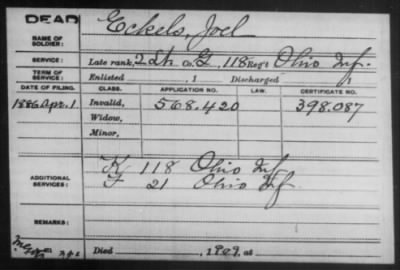 DEAD
NAME OF SOLDIER: Eckels, Joel
SERVICE: Late rank, 2 Lt. Co. G, 118 Reg't Ohio Inf.
TERM OF SERVICE: Enlisted , 1 Discharged , 1
DATE OF FILING. CLASS. APPLICATION NO. LAW. CERTIFICATE NO.
1886 Apr. 1 Invalid, 568.420 398.087
Widow,
Minor,
K 118 Ohio Inf
ADDITIONAL SERVICES: F 21 Ohio Inf
REMARKS:
Died , 1909, at